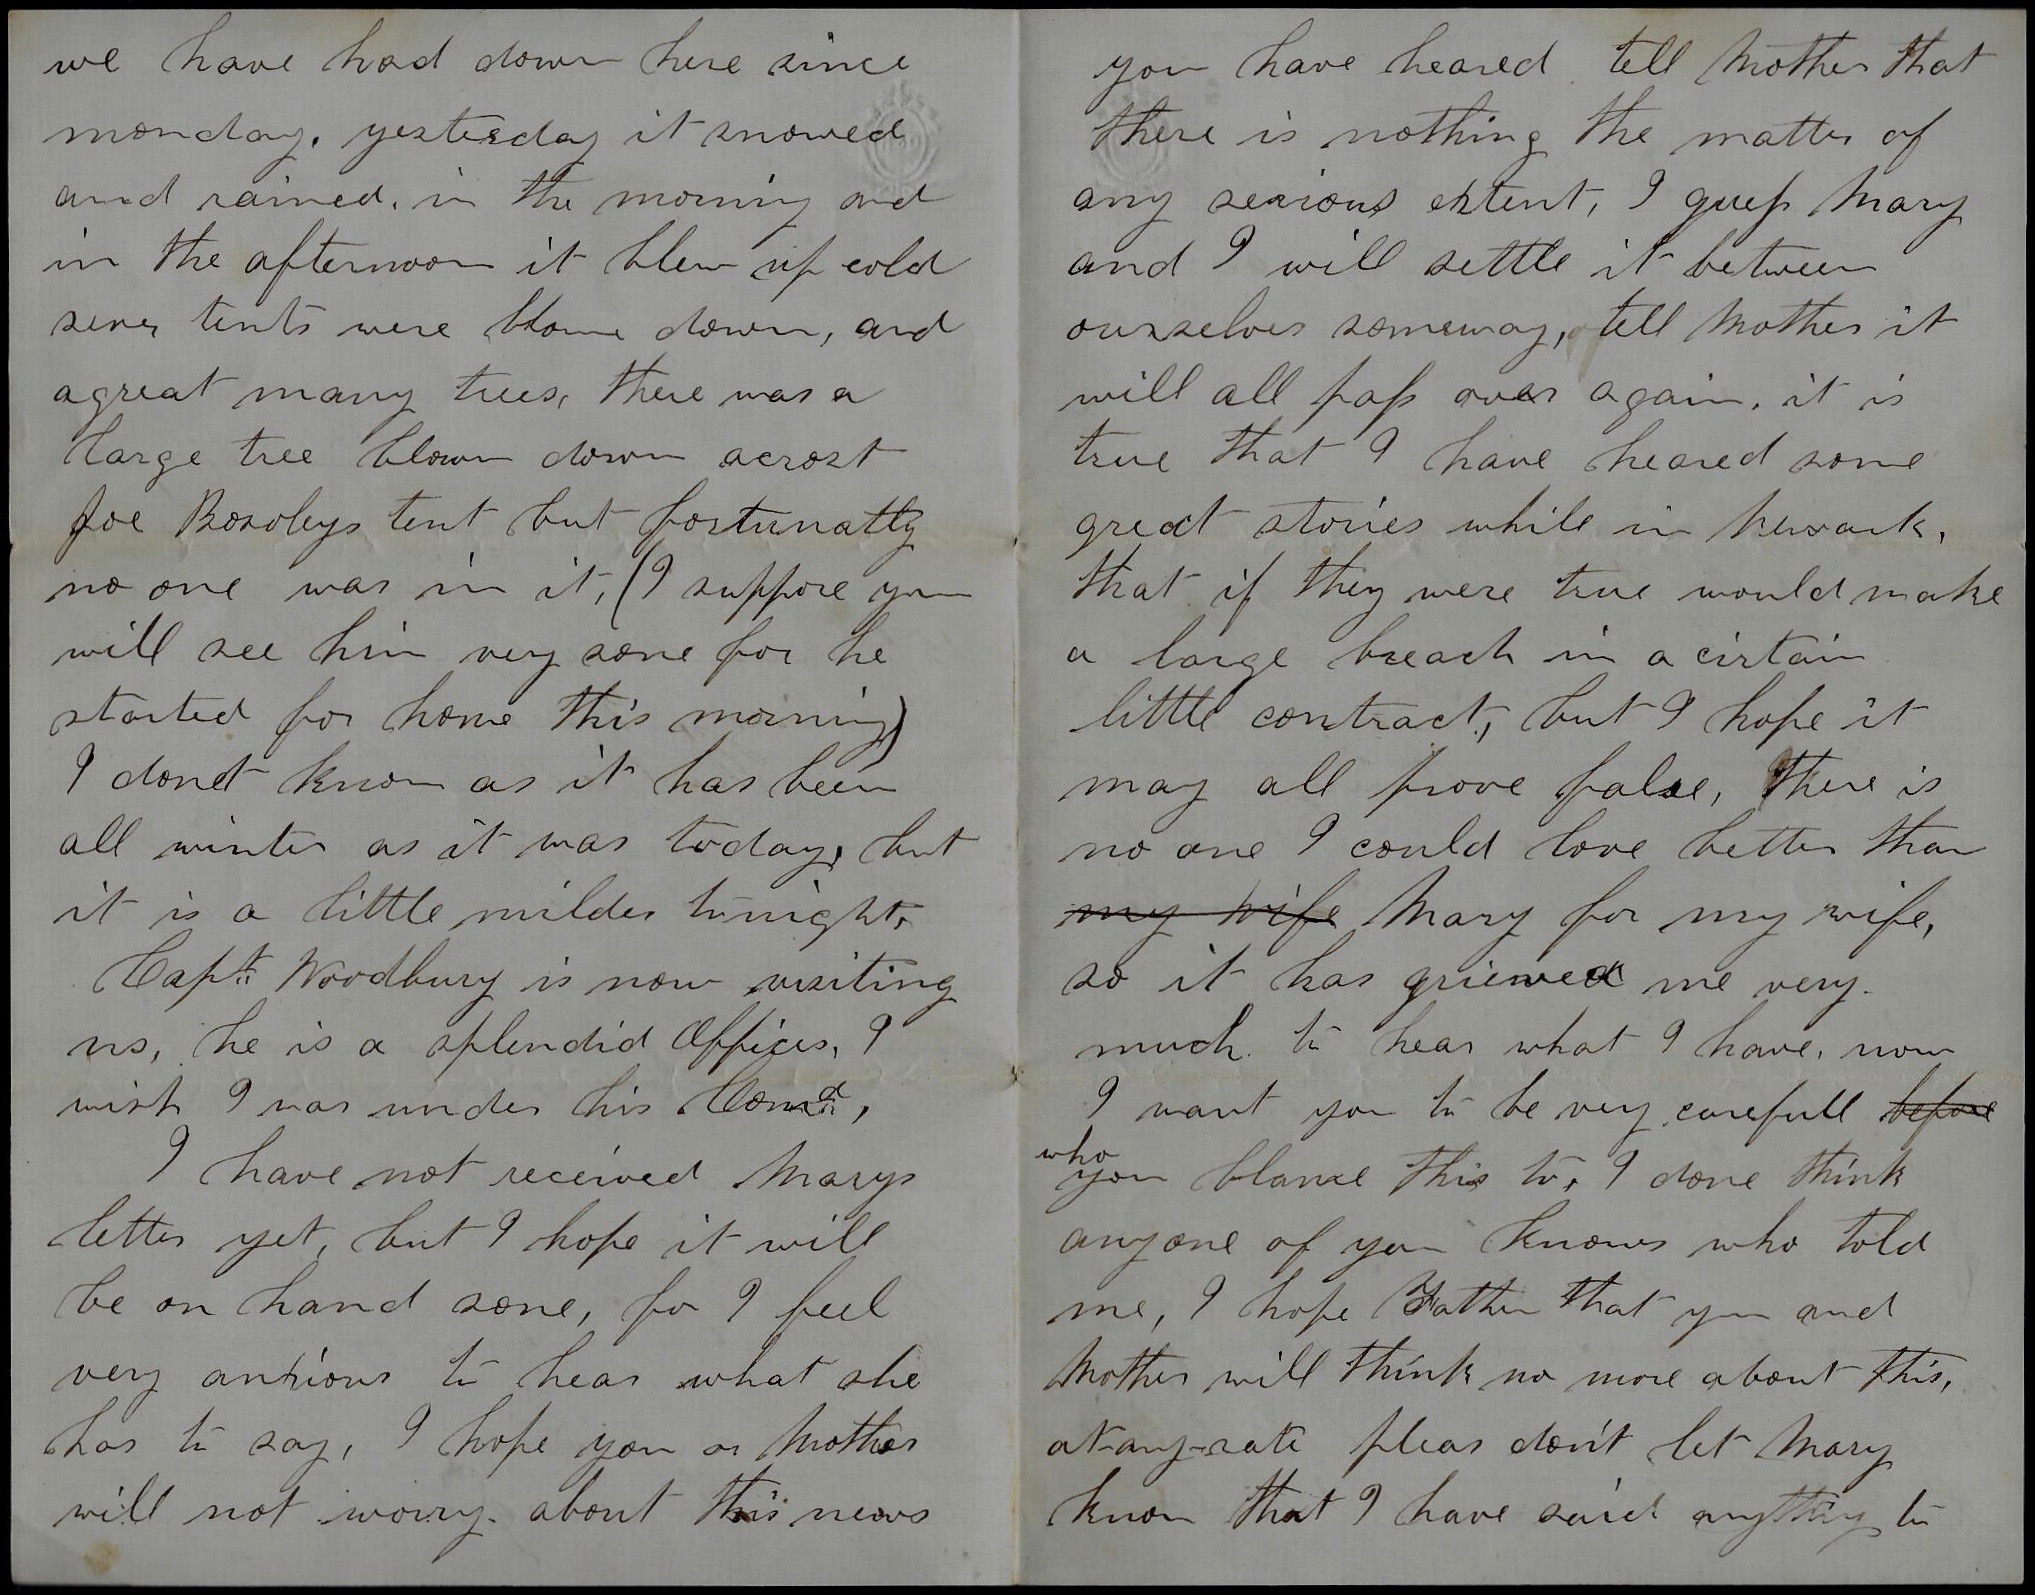 we have had down here since
monday. yesterday it snowed
and rained. in the morning and
in the afternoon it blew up cold
tents were blown down, and
agreat many trees, there was a
large tree blown down acrost
Joe tent but fortunatly
no one was in it, (I suppose you
will see him very sone for he
started for home this morning)
I dondt know as it has been
all winter as it was today, but
it is a little milder tonight.
Capt. Woodbury is now visiting
us, he is a splendid Officer, I
wish I was under his Comd,
I have not received Marys
letter yet, but I hope it will
be on hand sone, for I feel
very anxious to hear what she
has to say, I hope you or Mother
will not worry about this news
you have heared tell Mother that
there is nothing the matter of
any serious extent, I guess Mary
and I will settle it between
ourselves someway, tell Mother it
will all pass over again. it is
true that I have heared some
great stories while in Newark,
that if they were true would make
a large breach in a cirtain
little contract, but I hope it
may all prove false, There is
no one I could love better than
my wife Mary for my wife,
so it has grieved me very
much to hear what I have. now
I want you to be very carefull before
who
you blame this to, I done think
anyone of you knows who told
me, I hope Father that you and
Mother will think no more about this,
at-any-rate pleas don't let Mary
know that I have said anything to